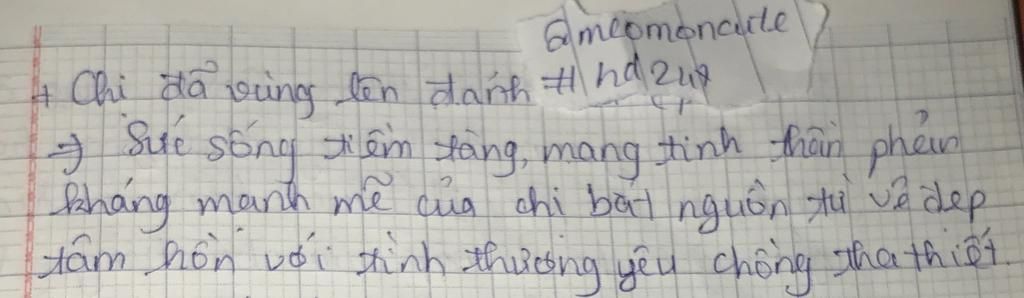 @meomoncute
+ Chị đã vùng lên đánh #hd247
=> Sức sống tiềm tàng, mang tinh thần phản
kháng mạnh mẽ của chị bắt nguồn từ vẻ đẹp
tâm hồn với tình thương yêu chồng tha thiết.